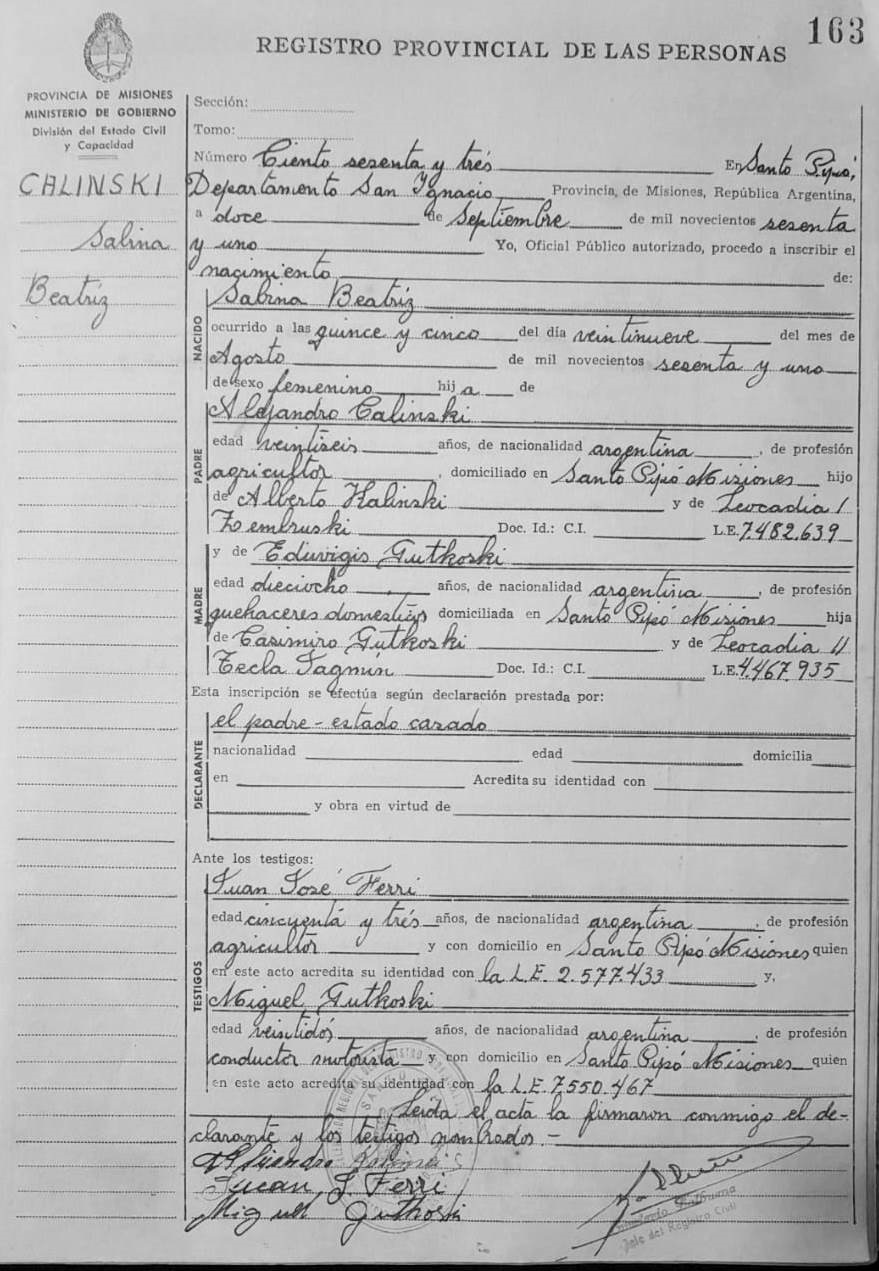 163
REGISTRO PROVINCIAL DE LAS PERSONAS
PROVINCIA DE MISIONES
MINISTERIO DE GOBIERNO
División del Estado Civil
y Capacidad
CALINSKI
Sabina
Beatriz
Sección:
Tomo:
Número Ciento sesenta y trés En Santo Pipó,
Departamento San Ignacio Provincia, de Misiones, República Argentina,
a doce de Septiembre de mil novecientos sesenta
y uno Yo, Oficial Público autorizado, procedo a inscribir el
nacimiento de:
NACIDO
Sabina Beatriz
ocurrido a las quince y cinco del día veintinueve del mes de
Agosto de mil novecientos sesenta y uno
de sexo femenino hij a de
PADRE
Alejandro Calinski
edad veintiseis años, de nacionalidad argentina, de profesión
agricultor, domiciliado en Santo Pipó Misiones hijo
de Alberto Kalinski y de Leocadia /
Zembruski Doc. Id.: C.I. L.E. 7.482.639
MADRE
y de Eduvigis Gutkoski
edad dieciocho años, de nacionalidad argentina, de profesión
quehaceres domesticos domiciliada en Santo Pipó Misiones hija
de Casimiro Gutkoski y de Leocadia //
Tecla Jagmin Doc. Id.: C.I. L.E. 4.467.935
Esta inscripción se efectúa según declaración prestada por:
DECLARANTE
el padre - estado casado
nacionalidad edad domicilia
en Acredita su identidad con
y obra en virtud de
Ante los testigos:
TESTIGOS
Juan José Ferri
edad cincuenta y trés años, de nacionalidad argentina, de profesión
agricultor y con domicilio en Santo Pipó Misiones quien
en este acto acredita su identidad con la L.E. 2.577.433 y,
Miguel Gutkoski
edad veintidós años, de nacionalidad argentina, de profesión
conductor motorista y con domicilio en Santo Pipó Misiones quien
en este acto acredita su identidad con la L.E. 7.550.467
Leida el acta la firmaron conmigo el de-
clarante y los testigos nombrados.-
Alejandro
Juan J. Ferri
Miguel Gutkoski
Jefe del Registro Civil